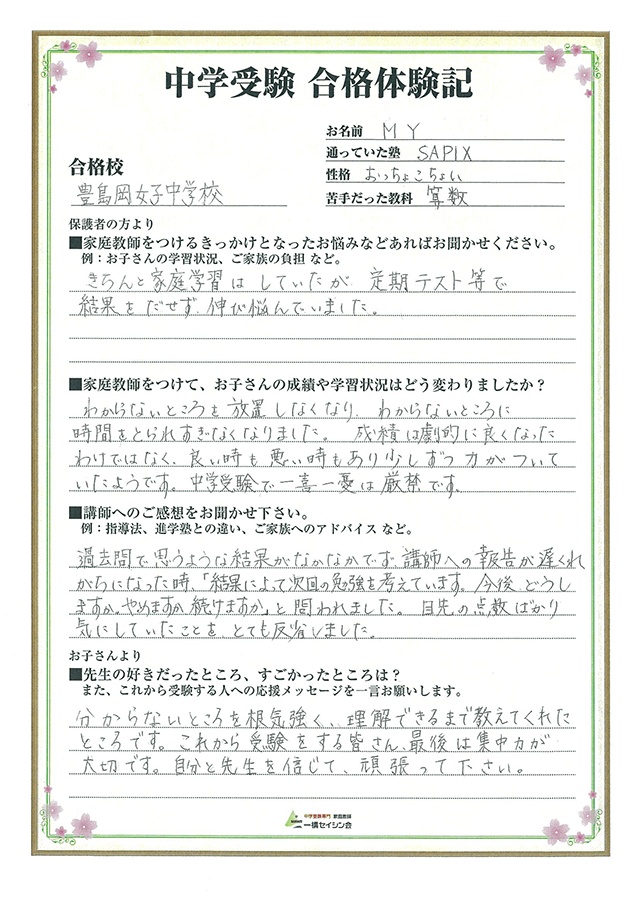 中学受験 合格体験記
お名前 MY
通っていた塾 SAPIX
合格校
性格 おっちょこちょい
豊島岡女子中学校
苦手だった教科 算数
保護者の方より
■家庭教師をつけるきっかけとなったお悩みなどあればお聞かせください。
例：お子さんの学習状況、ご家族の負担 など。
きちんと家庭学習は していたが 定期テスト等で
結果をだせず、伸び悩んでいました。
■家庭教師をつけて、お子さんの成績や学習状況はどう変わりましたか？
わからないところを 放置しなくなり、わからないところに
時間をとられすぎなくなりました。 成績は劇的に良くなった
わけではなく、良い時も 悪い時もあり少しずつ力がついて
いたようです。中学受験で一喜一憂は厳禁です。
■講師へのご感想をお聞かせ下さい。
例：指導法、進学塾との違い、ご家族へのアドバイス など。
過去問で思うような結果がなかなかでず、講師への報告が遅くれ
がちになった時、「結果によって次回の勉強を考えています。今後、どうし
ますか。やめますか続けますか」と問われました。目先の点数ばかり
気にしていたことを、とても反省しました。
お子さんより
■先生の好きだったところ、すごかったところは？
また、これから受験する人への応援メッセージを一言お願いします。
分からないところを根気強く、理解できるまで教えてくれた
ところです。これから受験をする皆さん、最後は集中力が
大切です。自分と先生を信じて、頑張って下さい。
中学受験専門 家庭教師
一橋セイシン会